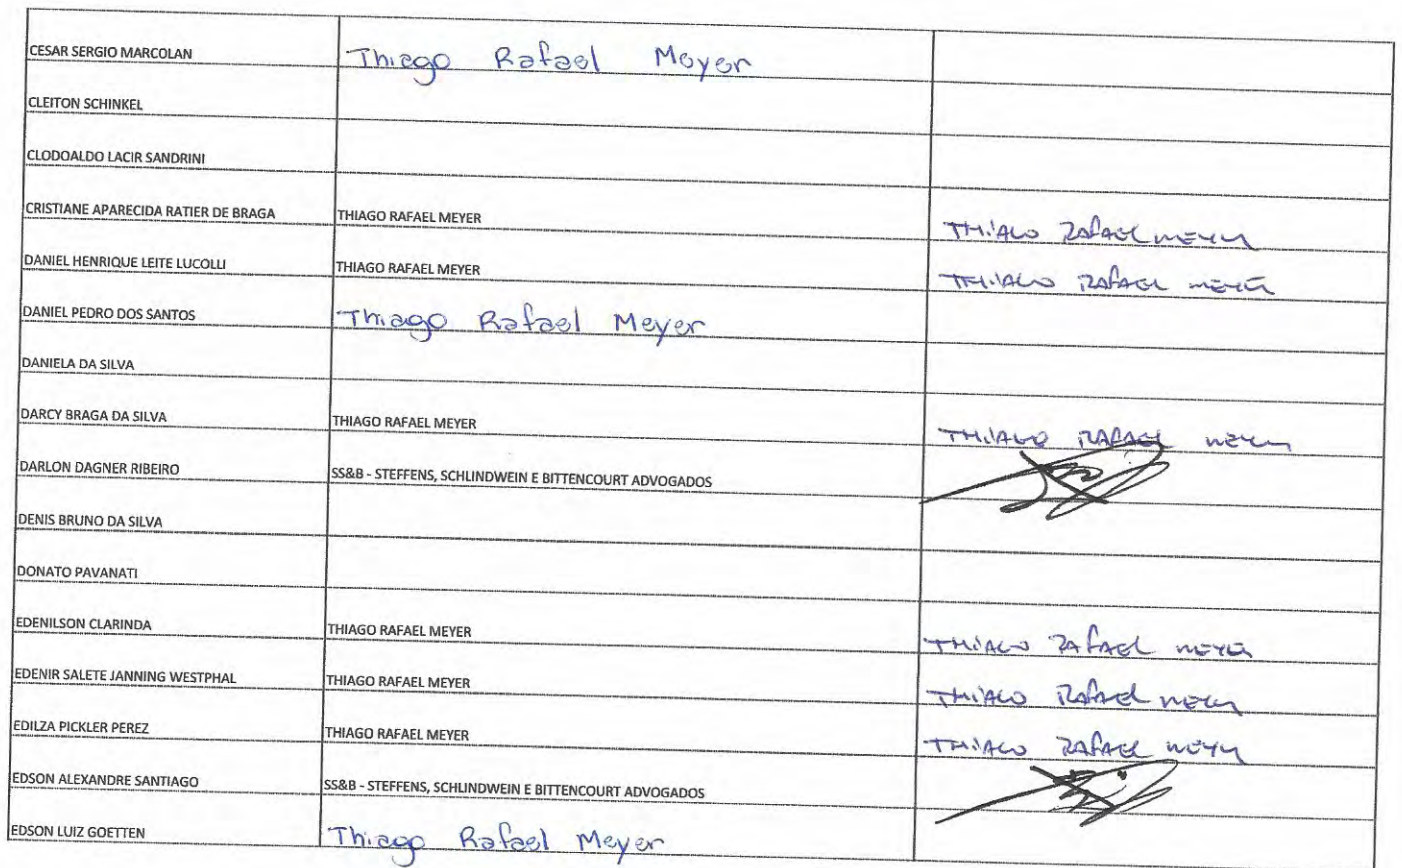 CESAR SERGIO MARCOLAN Thiago Rafael Meyer
CLEITON SCHINKEL
CLODOALDO LACIR SANDRINI
CRISTIANE APARECIDA RATIER DE BRAGA THIAGO RAFAEL MEYER THIAGO RAFAEL MEYER
DANIEL HENRIQUE LEITE LUCOLLI THIAGO RAFAEL MEYER THIAGO RAFAEL MEYER
DANIEL PEDRO DOS SANTOS Thiago Rafael Meyer
DANIELA DA SILVA
DARCY BRAGA DA SILVA THIAGO RAFAEL MEYER THIAGO RAFAEL MEYER
DARLON DAGNER RIBEIRO SS&B - STEFFENS, SCHLINDWEIN E BITTENCOURT ADVOGADOS
DENIS BRUNO DA SILVA
DONATO PAVANATI
EDENILSON CLARINDA THIAGO RAFAEL MEYER THIAGO RAFAEL MEYER
EDENIR SALETE JANNING WESTPHAL THIAGO RAFAEL MEYER THIAGO RAFAEL MEYER
EDILZA PICKLER PEREZ THIAGO RAFAEL MEYER THIAGO RAFAEL MEYER
EDSON ALEXANDRE SANTIAGO SS&B - STEFFENS, SCHLINDWEIN E BITTENCOURT ADVOGADOS
EDSON LUIZ GOETTEN Thiago Rafael Meyer